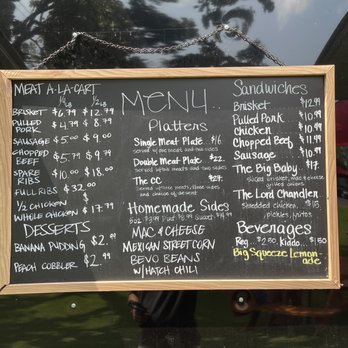 MEAT A-LA-CART
1/4 LB 1/2 LB
BRISKET $6.79 $12.79
PULLED PORK $4.79 $8.79
SAUSAGE $5.00 $9.00
CHOPPED BEEF $5.79 $9.79
SPARE RIBS $10.00 $18.00
FULL RIBS $32.00
1/2 CHICKEN $
WHOLE CHICKEN $17.79
DESSERTS
BANANA PUDDING $2.99
PEACH COBBLER $2.99
MENU..
Platters
Single Meat Plate
served w/one meat and two sides
Double Meat Plate $22.
served w/two meats and two sides
The CC
served w/three meats, three sides
and choice of dessert
Homemade Sides
8oz $3.99 Pint $8. Quart
MAC & CHEESE
MEXICAN STREET CORN
BEVO BEANS
W/HATCH CHILI
Sandwiches
Brisket $12.99
Pulled Pork $10.99
Chicken $10.99
Chopped Beef $11.99
Sausage $10.99
The Big Baby
The Lord Chandler
Shredded chicken,
pickles,
Beverages
Reg... $2.50 Kiddo... $1.50
Big Squeeze Lemon-
ade